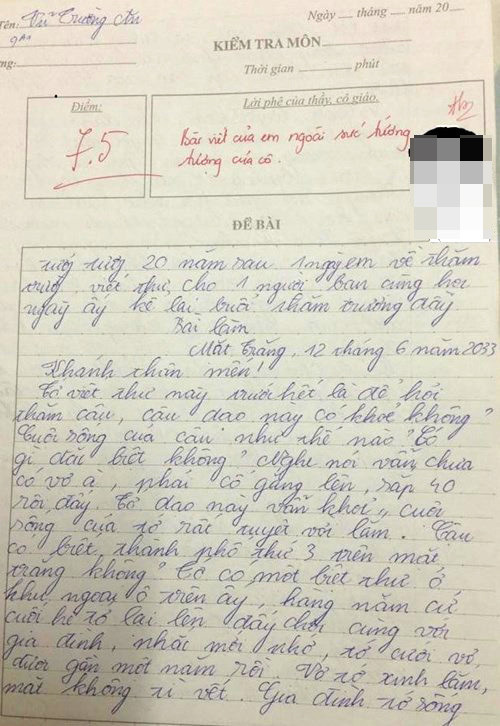 Tên: Vũ Trường An
9A1
Ngày ___ tháng ___ năm 20___
ng:
KIỂM TRA MÔN
Thời gian ______ phút
Điểm:
7.5
Lời phê của thầy, cô giáo.
Bài viết của em ngoài sức tưởng
tượng của cô.
ĐỀ BÀI
20 năm sau 1 ngày em về thăm
viết thư cho 1 người bạn cùng học
ngày ấy kể lại buổi thăm trường đầy
Bài làm
Mặt Trăng, 12 tháng 6 năm 2033
Khanh thân mến!
Tớ viết thư này trước hết là để hỏi
thăm cậu, cậu dạo này có khoẻ không?
Cuộc sống của cậu như thế nào? Có
gì đặc biệt không? Nghe nói vẫn chưa
có vợ à, phải cố gắng lên, sắp 40
rồi đấy. Tớ dạo này vẫn khoẻ, cuộc
sống của tớ rất tuyệt vời lắm. Cậu
có biết thành phố thứ 3 trên mặt
trăng không? Tớ có một biệt thự ở
khu ngoại ô trên ấy, hàng năm cứ
cuối hè tớ lại lên đấy chơi cùng với
gia đình, nhắc mới nhớ, tớ cưới vợ
được gần một năm rồi. Vợ tớ xinh lắm,
mặt không tì vết. Gia đình tớ sống